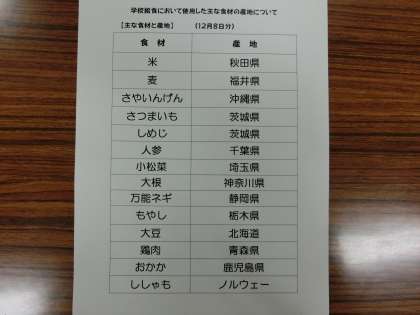 学校給食において使用した主な食材の産地について
【主な食材と産地】 (12月8日分)
食材 産地
米 秋田県
麦 福井県
さやいんげん 沖縄県
さつまいも 茨城県
しめじ 茨城県
人参 千葉県
小松菜 埼玉県
大根 神奈川県
万能ネギ 静岡県
もやし 栃木県
大豆 北海道
鶏肉 青森県
おかか 鹿児島県
ししゃも ノルウェー